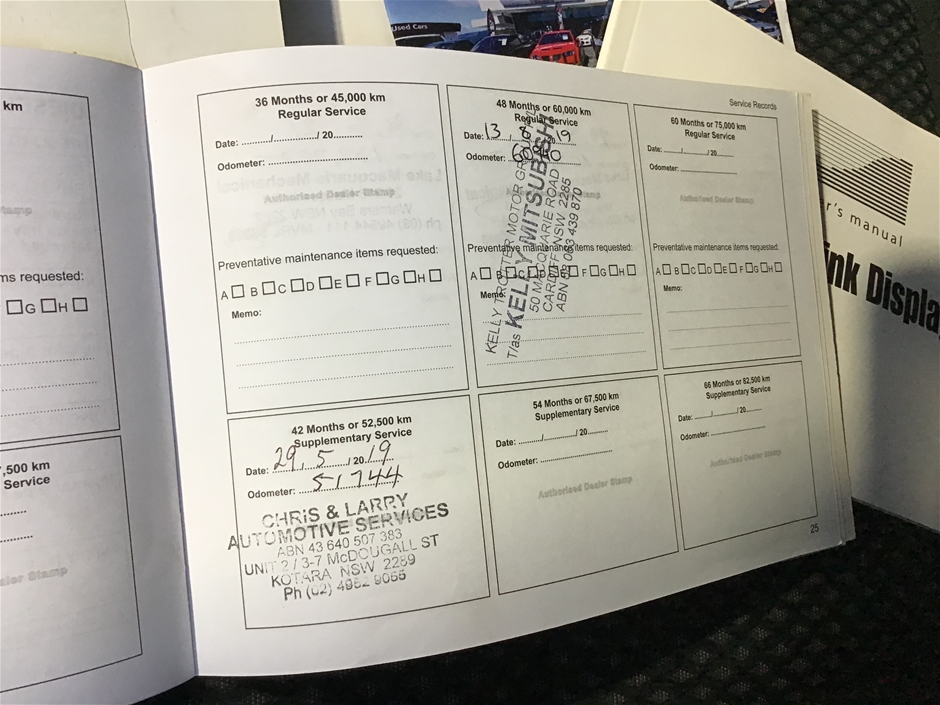 Used Cars
km
ms requested:
G H
,500 km
Service
Service Records
36 Months or 45,000 km
Regular Service
Date: ........../............/ 20..........
Odometer: ....................................
Authorised Dealer Stamp
Preventative maintenance items requested:
A B C D E F G H
Memo:
48 Months or 60,000 km
Regular Service
Date: 13 8 19
Odometer:
Preventative maintenance items requested:
A B C D E F G H
Memo:
KELLY TROTTER MOTOR GROUP
T/as KELLY MITSUBISHI
50 MACQUARIE ROAD
CARDIFF NSW 2285
60 Months or 75,000 km
Regular Service
Date: ......../........./ 20.........
Odometer: ............................
Authorised Dealer Stamp
Preventative maintenance items requested:
A B C D E F G H
Memo:
42 Months or 52,500 km
Supplementary Service
Date: 29 . 5 / 20 19
Odometer: 51744
CHRIS & LARRY
AUTOMOTIVE SERVICES
ABN 43 640 507 383
UNIT 2 / 3-7 McDOUGALL ST
KOTARA NSW 2289
Ph (02) 4952 9055
54 Months or 67,500 km
Supplementary Service
Date: ........../........../ 20.........
Odometer: ................................
Authorised Dealer Stamp
66 Months or 82,500 km
Supplementary Service
Date: ......../......../ 20.........
Odometer: ............................
Authorised Dealer Stamp
25
er's manual
ink Displa